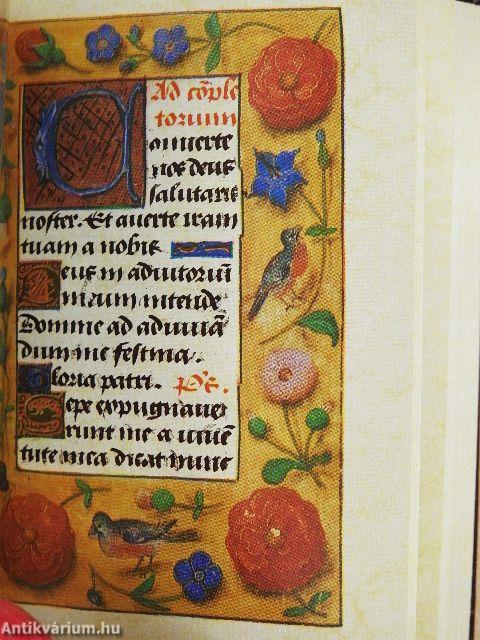 Ad cõple
torium
Conuerte
nos deus
salutaris
noster. Et auerte iram
tuam a nobis.
Deus in adiutoriũ
meum intende
Domine ad adiuuã
dum me festina.
Gloria patri. ps.
Sepe expugnauer
runt me a iuuẽ
tute mea dicat nunc
Antikvárium.hu